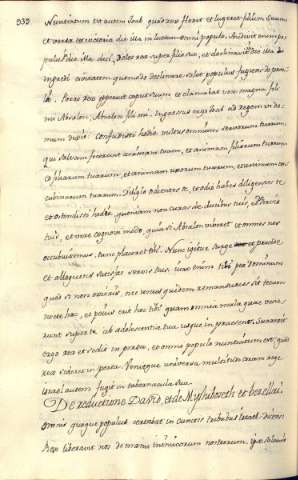 932
Nuntiatum est autem Joab quod rex fleret et lugeret filium suum
et versa est victoria die illa in luctum omni populo. Audivit enim po-
pulus die illa dici, dolet rex super filio suo, et declinavit die illa
ingredi civitatem quomodo declinare solet populus fugiens de præ-
lio. Porro rex operuit caput suum et clamabat voce magna fili
mi Absalon, Absalon fili mi. Ingressus ergo Joab ad regem in do-
mum dixit: Confudisti hodie vultus omnium servorum tuorum,
qui salvam fecerunt animam tuam, et animam filiorum tuorum
et filiarum tuarum, et animam uxorum tuarum, et animam con-
cubinarum tuarum. Diligis odientes te, et odio habes diligentes te
et ostendisti hodie, quoniam non curas de ducibus tuis, et servis
tuis, et vere cognovi modo, quia si Absalon viveret et omnes nos
occubuissemus, tunc placeret tibi. Nunc igitur surge et procede
et alloquens satisfac servis tuis: iuro enim tibi per Dominum
quod si non exieris, ne unus quidem remansurus sit tecum
nocte hac, et peius erit hoc tibi quam omnia mala quæ vene-
runt super te ab adolescentia tua usque in præsens. Surrexit
ergo rex et sedit in porta, et omni populo nuntiatum est, quod
rex sederet in porta. Venitque universa multitudo coram rege
Israel autem fugit in tabernacula sua.
De reductione David, et de Myphiboseth et berellai.
Omnis quoque populus certabat in cunctis tribubus Israel dicens
Rex liberavit nos de manu inimicorum nostrorum, ipse salvavit